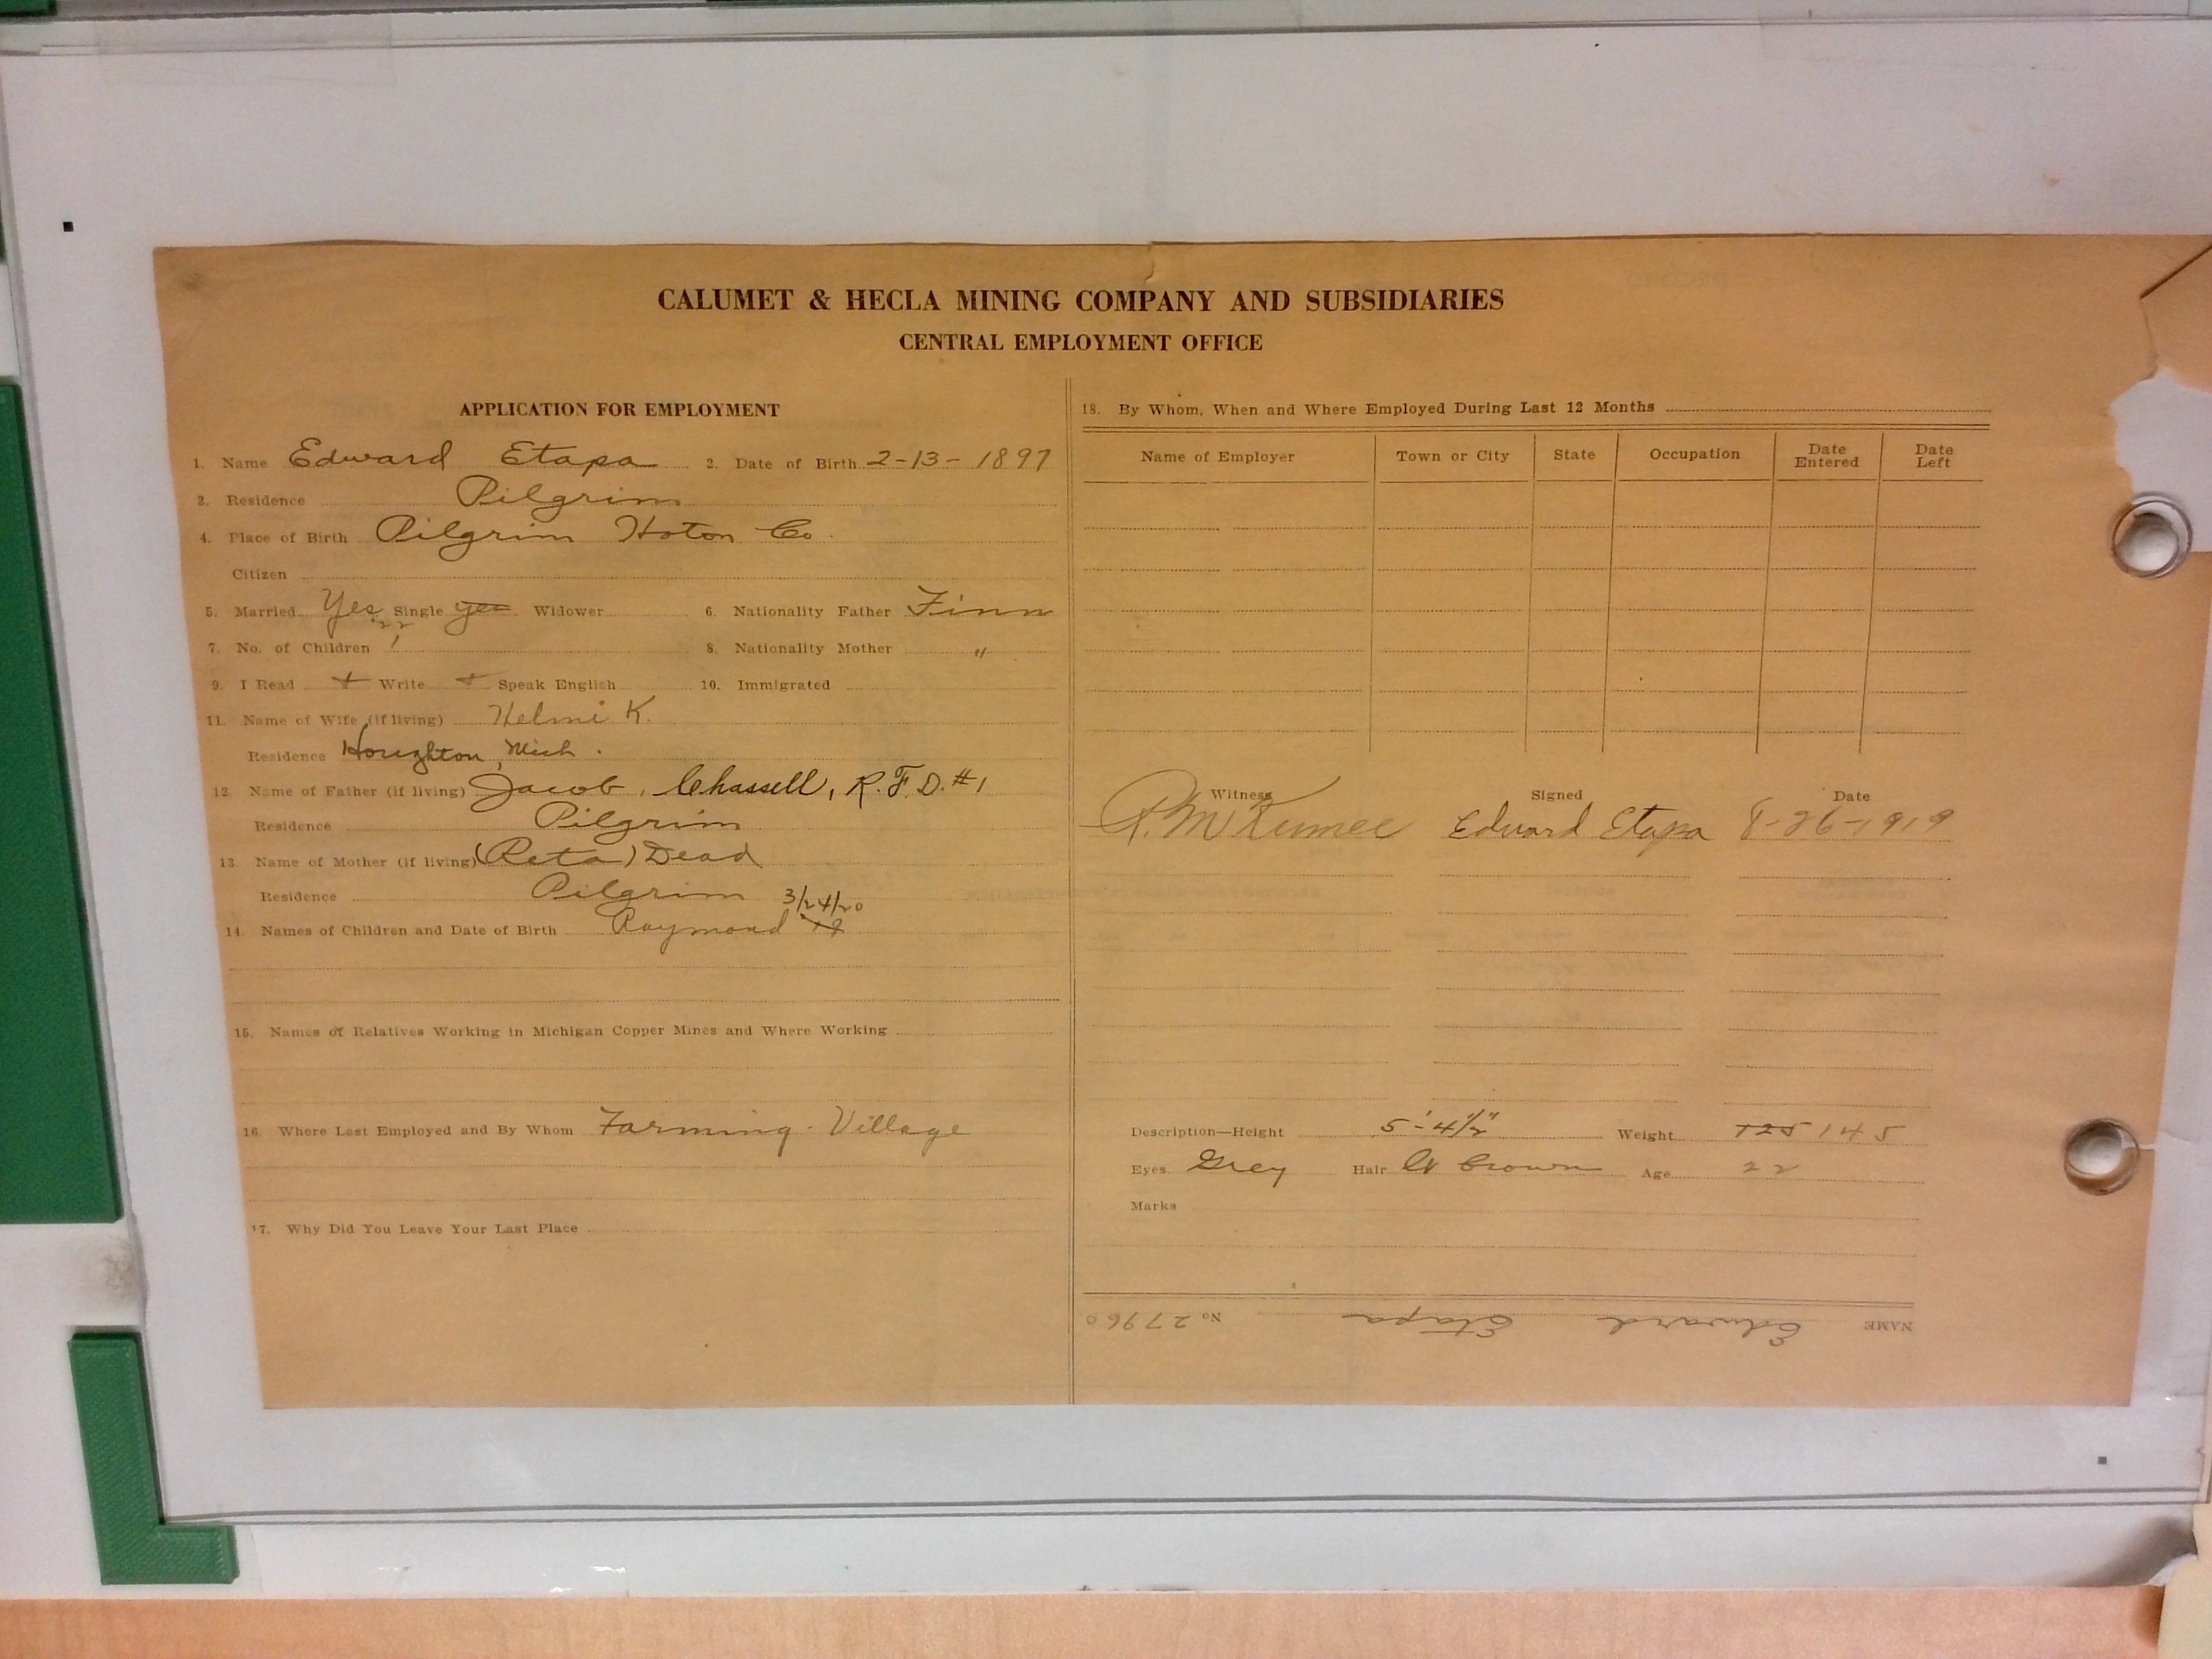 CALUMET & HECLA MINING COMPANY AND SUBSIDIARIES
CENTRAL EMPLOYMENT OFFICE
APPLICATION FOR EMPLOYMENT
1. Name Edward Etapa 2. Date of Birth 2-13-1897
3. Residence Pilgrim
4. Place of Birth Pilgrim Hoton Co.
Citizen
5. Married Yes Single yes Widower 6. Nationality Father Finn
7. No. of Children 1 8. Nationality Mother "
9. I Read + Write + Speak English 10. Immigrated
11. Name of Wife (if living) Helmi K.
Residence Houghton, Mich.
12. Name of Father (if living) Jacob, Chassell, R.F.D. #1
Residence Pilgrim
13. Name of Mother (if living) (Reta) Dead
Residence Pilgrim
14. Names of Children and Date of Birth Raymond 3/24/20
15. Names of Relatives Working in Michigan Copper Mines and Where Working
16. Where Last Employed and By Whom Farming - Village
17. Why Did You Leave Your Last Place
18. By Whom, When and Where Employed During Last 12 Months
Name of Employer Town or City State Occupation Date Entered Date Left
Witness Signed Date
Edward Etapa 8-26-1919
Description—Height 5'-4½" Weight 125 145
Eyes Grey Hair Brown Age 22
Marks
NAME Edward Etapa No 27960